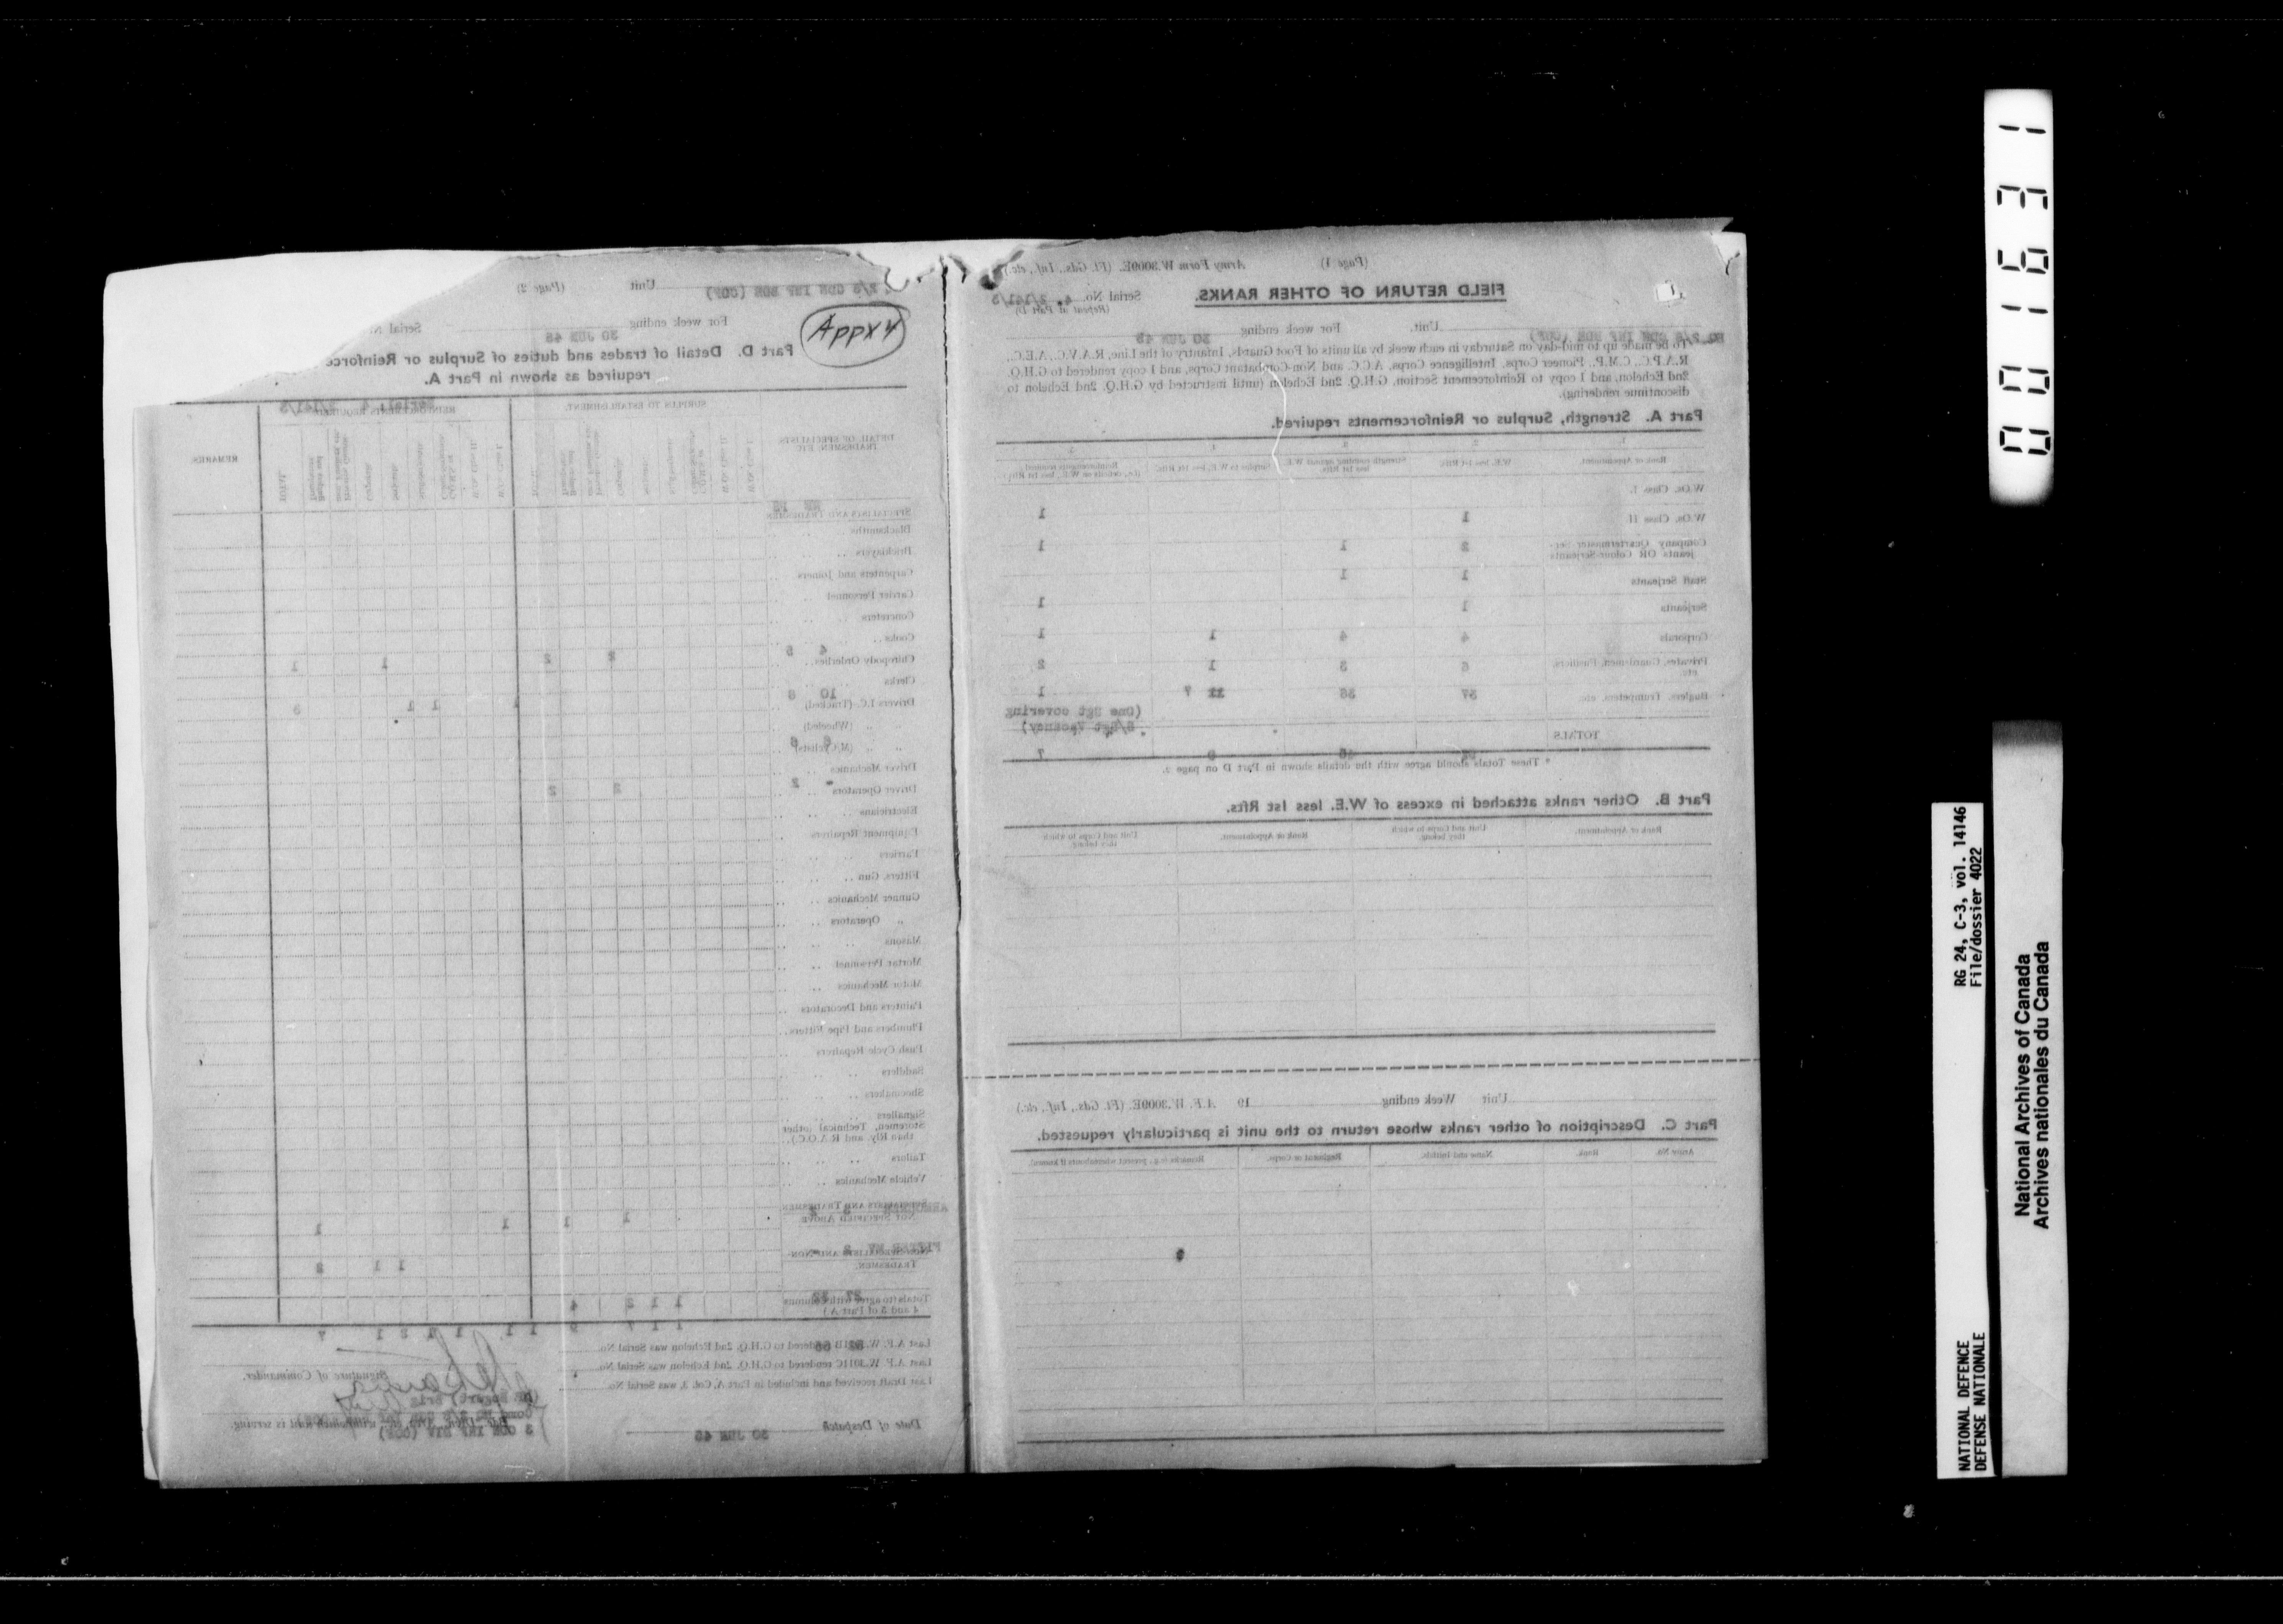 (Page 1) Army Form W.3009E. (Ft. Gds., Inf., etc.)
FIELD RETURN OF OTHER RANKS.
Serial No. 4. 2/141/3
(Repeat at Part D)
HQ 2/3 CDN INF BDE (COF) Unit. For week ending 30 JUN 45
To be made up to mid-day on Saturday in each week by all units of Foot Guards, Infantry of the Line, R.A.V.C., A.E.C.,
R.A.P.C., C.M.P., Pioneer Corps, Intelligence Corps, A.C.C. and Non-Combatant Corps, and 1 copy rendered to G.H.Q.
2nd Echelon, and 1 copy to Reinforcement Section, G.H.Q. 2nd Echelon (until instructed by G.H.Q. 2nd Echelon to
discontinue rendering).
Part A. Strength, Surplus or Reinforcements required.
Rank or Appointment. W.E. less 1st Rfts. Strength counting against W.E. less 1st Rfts. Surplus to W.E. less 1st Rfts. Reinforcements required
W.Os. Class I.
W.Os. Class II 1 1
Company Quartermaster Ser-
jeants OR Colour-Serjeants 2 1 1
Staff Serjeants 1 1
Serjeants 1 1
Corporals 4 4 1 1
Privates, Guardsmen, Fusiliers, etc. 6 3 1 2
Buglers, Trumpeters, etc. 37 36 7 1
(One Sgt covering
S/Sgt Vacancy)
TOTALS 9 7
* These Totals should agree with the details shown in Part D on page 2.
Part B. Other ranks attached in excess of W.E. less 1st Rfts.
Rank or Appointment. Unit and Corps to which they belong. Rank or Appointment. Unit and Corps to which they belong.
Unit Week ending 19 A.F. W.3009E. (Ft. Gds., Inf., etc.)
Part C. Description of other ranks whose return to the unit is particularly requested.
Army No. Rank. Name and Initials. Regiment or Corps. Remarks (e.g., present whereabouts if known).
2/3 CDN INF BDE (COF) Unit (Page 2)
For week ending 30 JUN 45 Serial N
Appx 4
Part D. Detail of trades and duties of Surplus or Reinforce
required as shown in Part A.
Serial 4 2/141/3
DETAIL OF SPECIALISTS TRADESMEN, ETC. SURPLUS TO ESTABLISHMENT. REINFORCEMENTS REQUIRED REMARKS.
SPECIALISTS AND TRADESMEN
Blacksmiths
Bricklayers
Carpenters and Joiners
Carrier Personnel
Concretors
Cooks 4 5
Chiropody Orderlies 2 2 1 1
Clerks 10 8
Drivers I.C. (Tracked) 1 1 1 3
" " (Wheeled)
" " (M/Cyclists) 6 6
Driver Mechanics
Driver Operators - 2 2 2
Electricians
Equipment Repairers
Farriers
Fitters, Gun
Gunner Mechanics
" Operators
Masons
Mortar Personnel
Motor Mechanics
Painters and Decorators
Plumbers and Pipe Fitters
Push Cycle Repairers
Saddlers
Shoemakers
Signallers
Storemen, Technical (other
than Rly. and R.A.O.C.)
Tailors
Vehicle Mechanics
SPECIALISTS AND TRADESMEN
NOT SPECIFIED ABOVE 1 1 1 1
FITTER MV 2
NON-SPECIALISTS AND NON-
TRADESMEN. 1 1 2
Totals (to agree with Columns
4 and 5 of Part A) 1 1 2 4
1 1 7 9 1 1 1 1 2 1 7
Last A.F. W.3011B rendered to G.H.Q. 2nd Echelon was Serial No.
Last A.F. W.3011C rendered to G.H.Q. 2nd Echelon was Serial No.
Last Draft received and included in Part A, Col. 3, was Serial No.
Signature of Commander.
3 CDN INF DIV (COF)
Date of Despatch 30 JUN 45
00163 1
RG 24, C-3, vol. 14146
File/dossier 4022
NATIONAL DEFENCE
DEFENSE NATIONALE
National Archives of Canada
Archives nationales du Canada